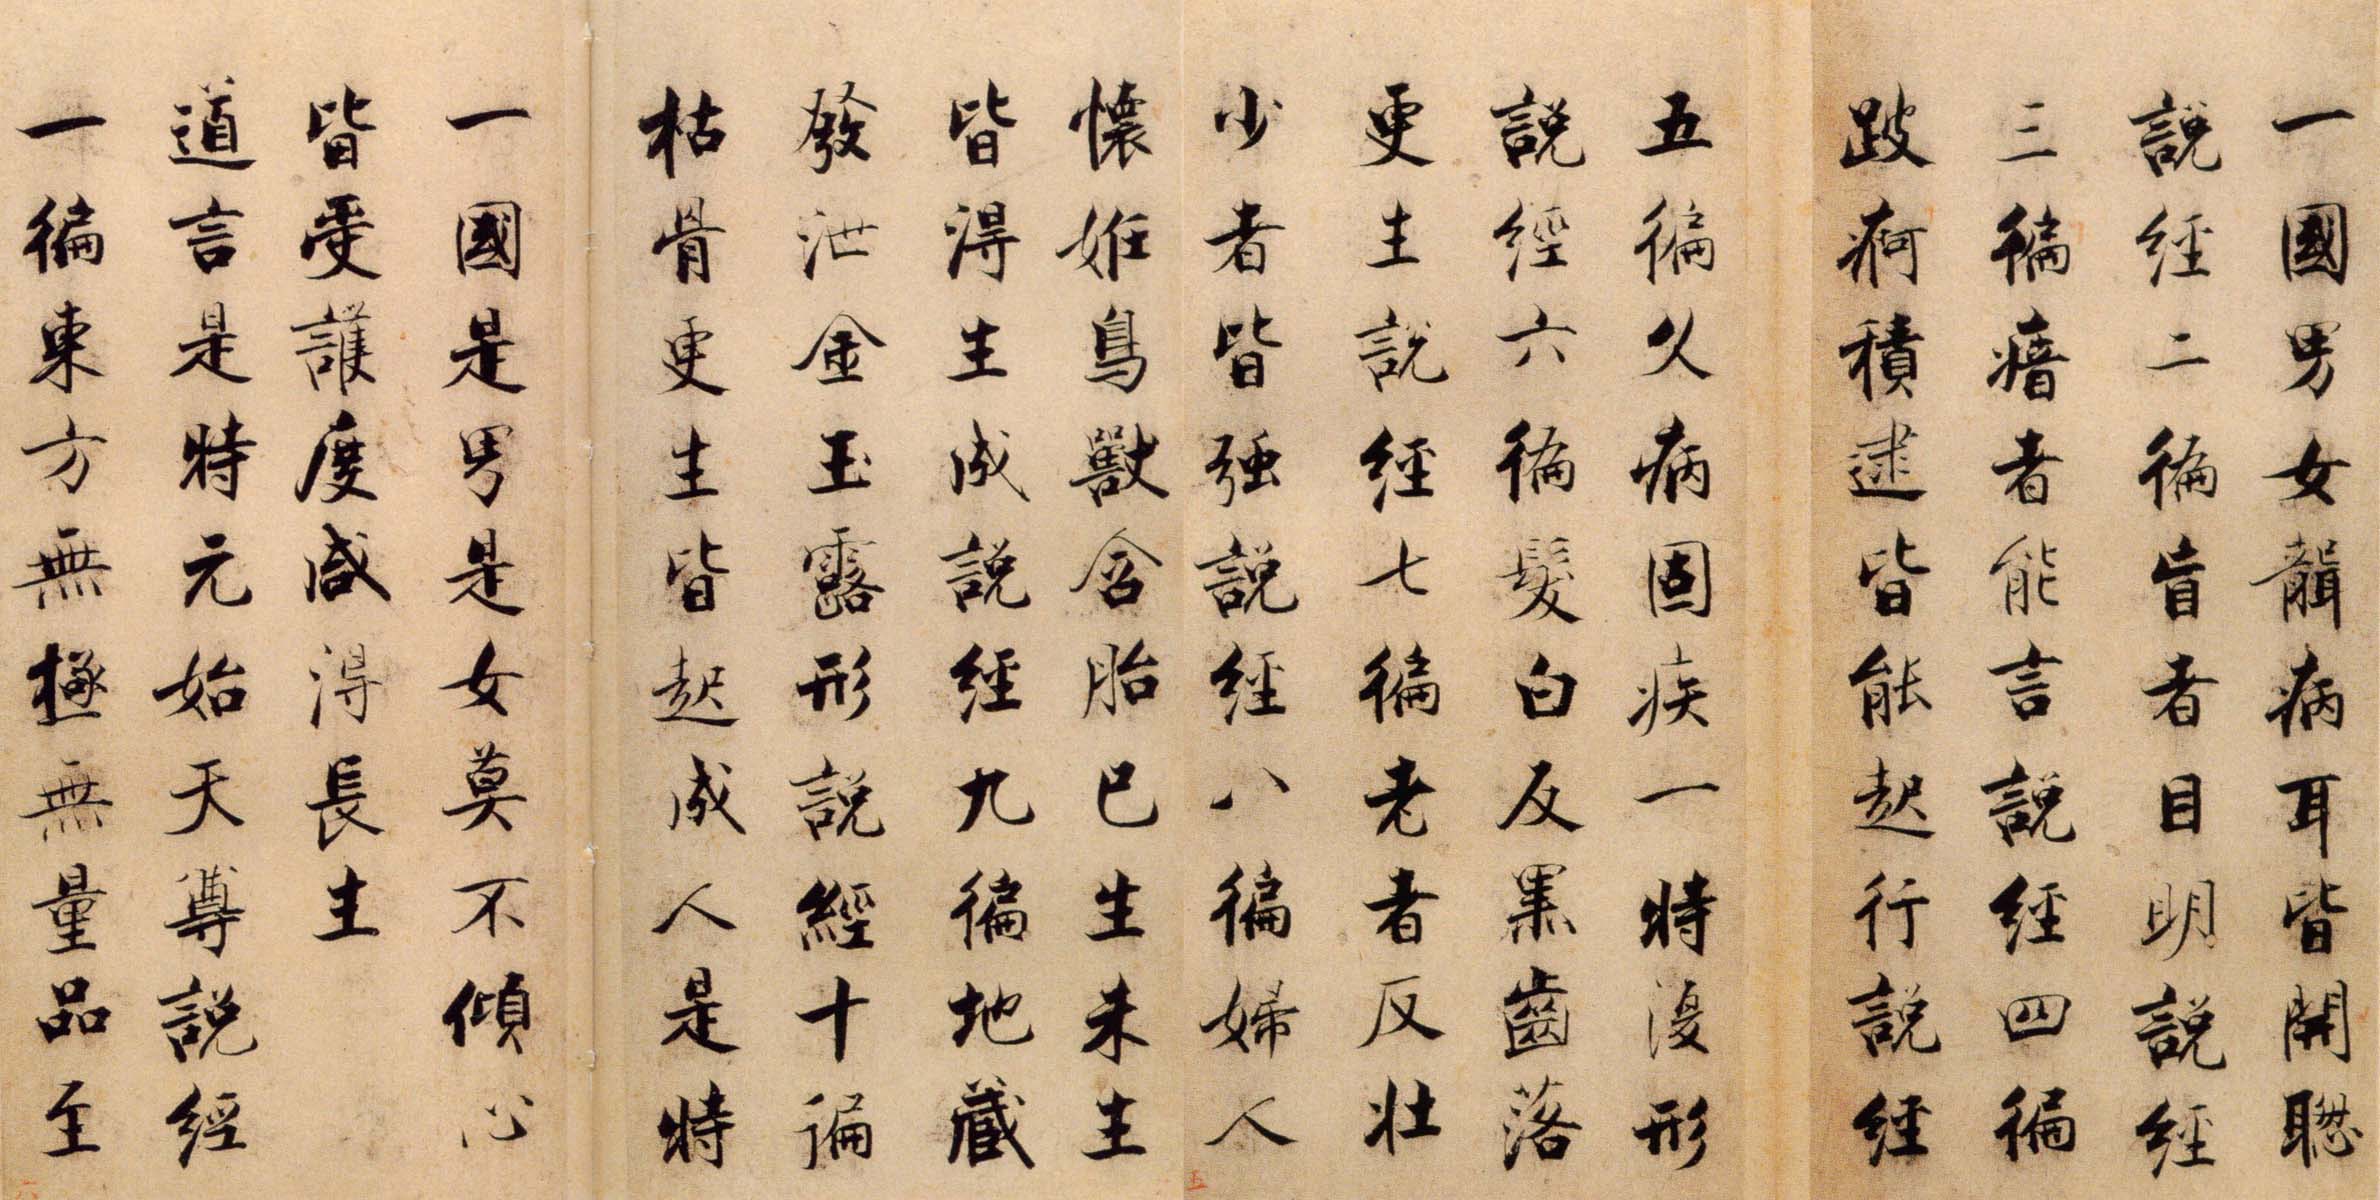 一國男女聾病耳皆開聰
說經二徧盲者目明說經
三徧瘖者能言說經四徧
跛痾積逮皆能起行說經
五徧久病固疾一時復形
說經六徧髮白反黑齒落
更生說經七徧老者反壯
少者皆強說經八徧婦人
懷妊鳥獸含胎已生未生
皆得生成說經九徧地藏
發泄金玉露形說經十徧
枯骨更生皆起成人是時
一國是男是女莫不傾心
皆受護度咸得長生
道言是時元始天尊說經
一徧東方無極無量品至
五
六